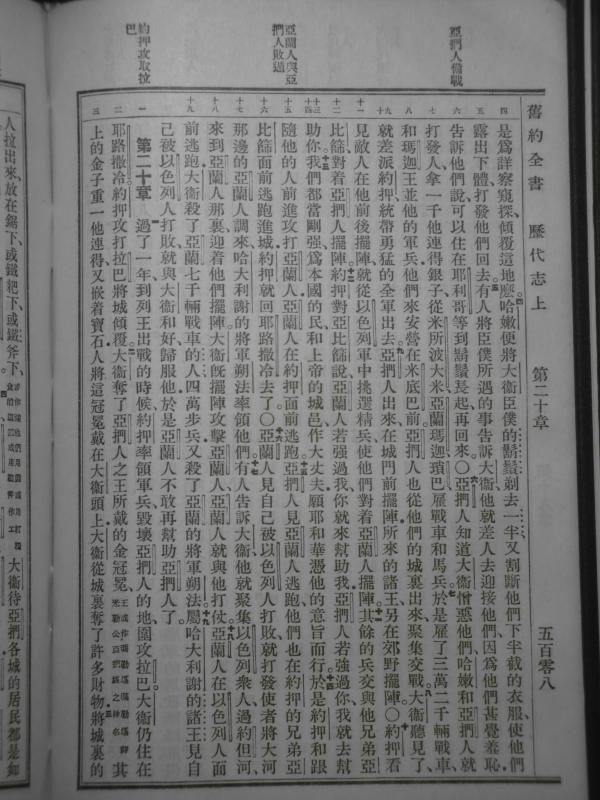 舊約全書 歷代志上 第二十章 五百零八
亞捫人備戰
亞蘭人與亞
捫人敗遁
約押攻取拉
巴
四 是爲詳察窺探傾覆這地麽哈嫩便將大衞臣僕的鬍鬚剃去一半又割斷他們下半截的衣服使他們
五 露出下體打發他們回去有人將臣僕所遇的事告訴大衞他就差人去迎接他們因爲他們甚覺羞恥
六 告訴他們說可以住在耶利哥等到鬍鬚長起再回來○亞捫人知道大衞憎惡他們哈嫩和亞捫人就
七 打發人拿一千他連得銀子從米所波大米亞蘭瑪迦瑣巴雇戰車和馬兵於是雇了三萬二千輛戰車
八 和瑪迦王並他的軍兵他們來安營在米底巴前亞捫人也從他們的城裏出來聚集交戰大衞聽見了
九 就差派約押統帶勇猛的全軍出去亞捫人出來在城門前擺陣所來的諸王另在郊野擺陣○約押看
十一 見敵人在他前後擺陣就從以色列軍中挑選精兵使他們對着亞蘭人擺陣其餘的兵交與他兄弟亞
十二 比篩對着亞捫人擺陣約押對亞比篩說亞蘭人若強過我你就來幫助我亞捫人若強過你我就去幫
十三 十四 助你我們都當剛強爲本國的民和上帝的城邑作大丈夫願耶和華憑他的意旨而行於是約押和跟
十五 隨他的人前進攻打亞蘭人亞蘭人在約押面前逃跑亞捫人見亞蘭人逃跑他們也在約押的兄弟亞
十六 比篩面前逃跑進城約押就回耶路撒冷去了○亞蘭人見自己被以色列人打敗就打發使者將大河
十七 那邊的亞蘭人調來哈大利謝的將軍朔法率領他們有人告訴大衞他就聚集以色列衆人過約但河
十八 來到亞蘭人那裏迎着他們擺陣大衞旣擺陣攻擊亞蘭人亞蘭人就與他打仗亞蘭人在以色列人面
十九 前逃跑大衞殺了亞蘭七千輛戰車的人四萬步兵又殺了亞蘭的將軍朔法屬哈大利謝的諸王見自
己被以色列人打敗就與大衞和好歸服他於是亞蘭人不敢再幫助亞捫人了
一 第二十章 過了一年到列王出戰的時候約押率領軍兵毀壞亞捫人的地圍攻拉巴大衞仍住在
二 耶路撒冷約押攻打拉巴將城傾覆大衞奪了亞捫人之王所戴的金冠冕其
三 上的金子重一他連得又嵌着寶石人將這冠冕戴在大衞頭上大衞從城裏奪了許多財物將城裏的
人拉出來放在鋸下或鐵耙下或鐵斧下大衞待亞捫各城的居民都是如